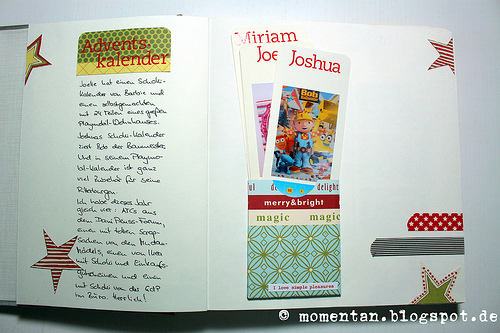 Advents
kalender
Joelle hat einen Schoki-
Kalender von Barbie und
einen selbstgemachten
mit 24 Teilen eines großen
Playmobil-Wohnhauses.
Joshuas Schoki-Kalender
ziert Bob der Baumeister
Und in seinem Playmo-
bil-Kalender ist ganz
viel Zubehör für seine
Ritterburgen.
Ich habe dieses Jahr
gleich vier: ATCs aus
dem DaniPeuss-Forum,
einen mit tollen Scrap-
sachen von den
mädels, einen von
mit Schoki und Einkaufs-
gutscheinen und einen
mit Schoki von der GdP
im Büro. Herrlich!
Miriam
Joe
Joshua
Bob
ul de delight
merry&bright
magic magic
I love simple pleasures
© momentan.blogspot.de